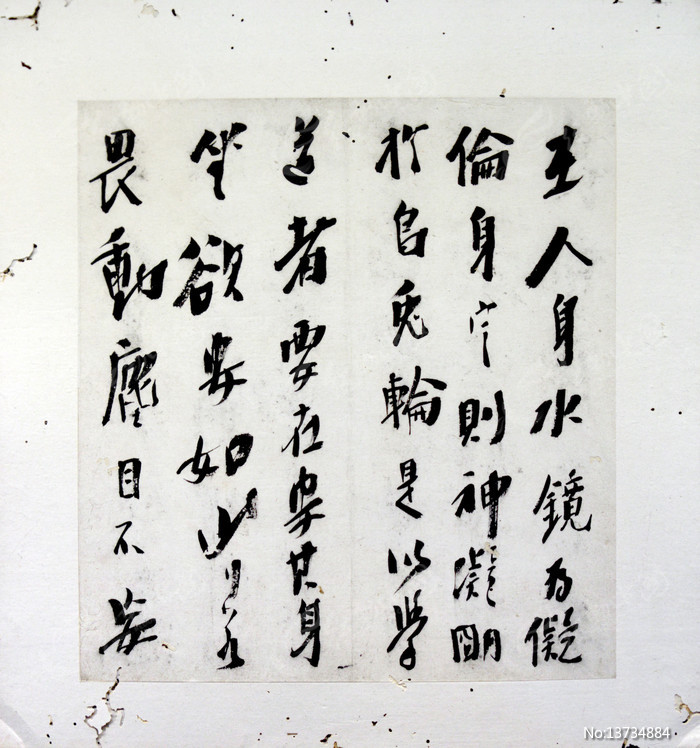 至人身水鏡为儗
倫身定則神凝明
於烏兔輪是以學
道者要在安其身
坐欲安如山行若
畏動塵目不妄
No:13734884